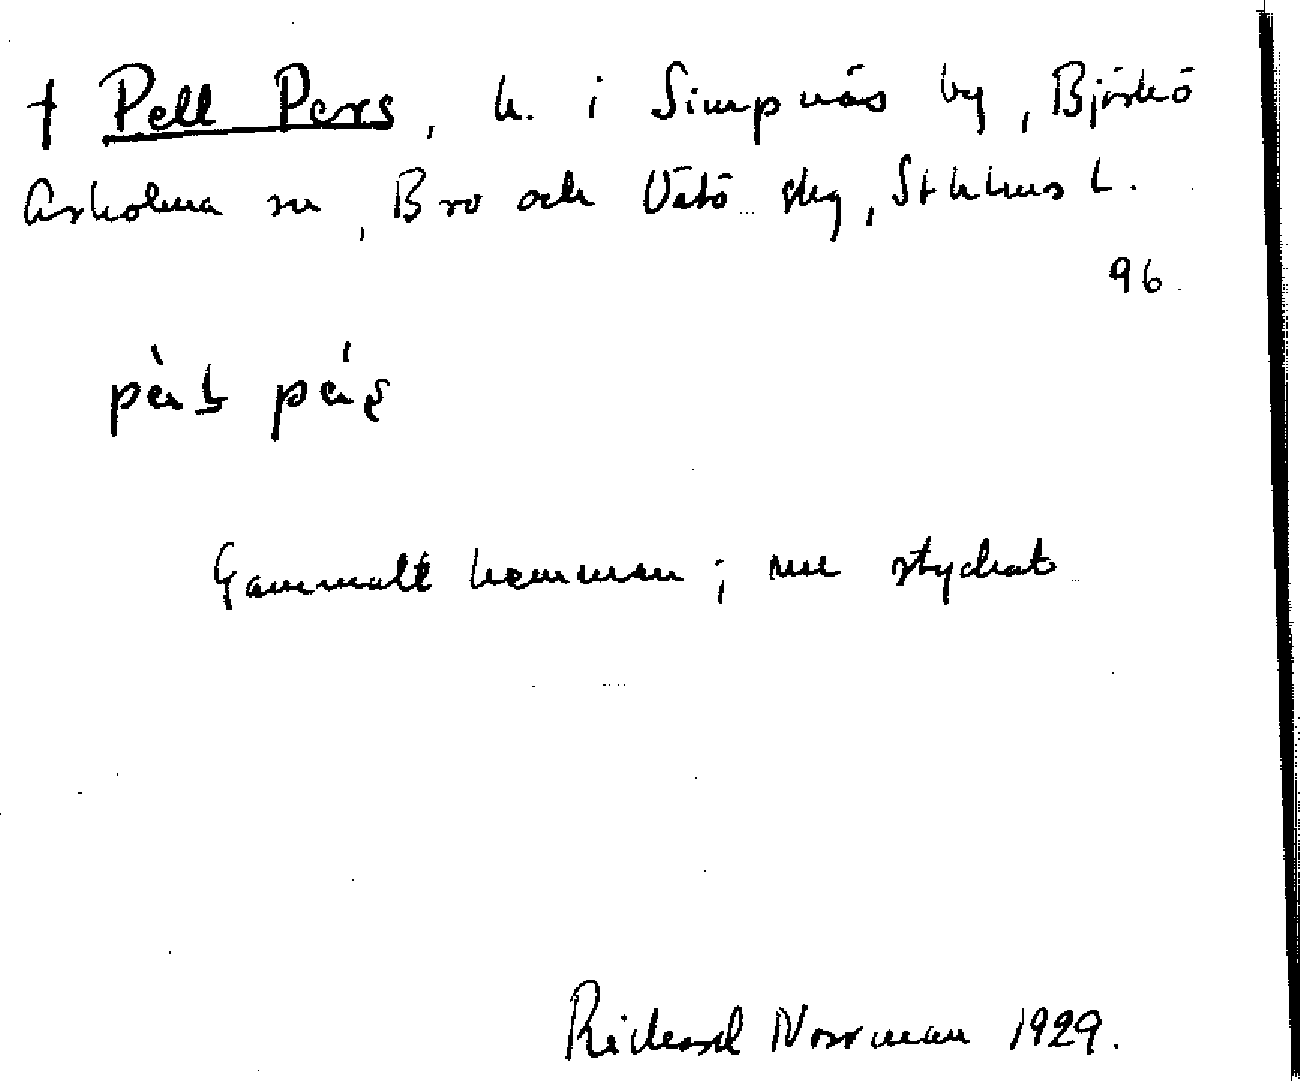 † Pell Pers, h. i Simpnäs by, Björkö
Arholma sn, Bro och Vätö skg, Sthlms l.
96.
Gammalt hemman; nu styckat
Richard Norrman 1929.